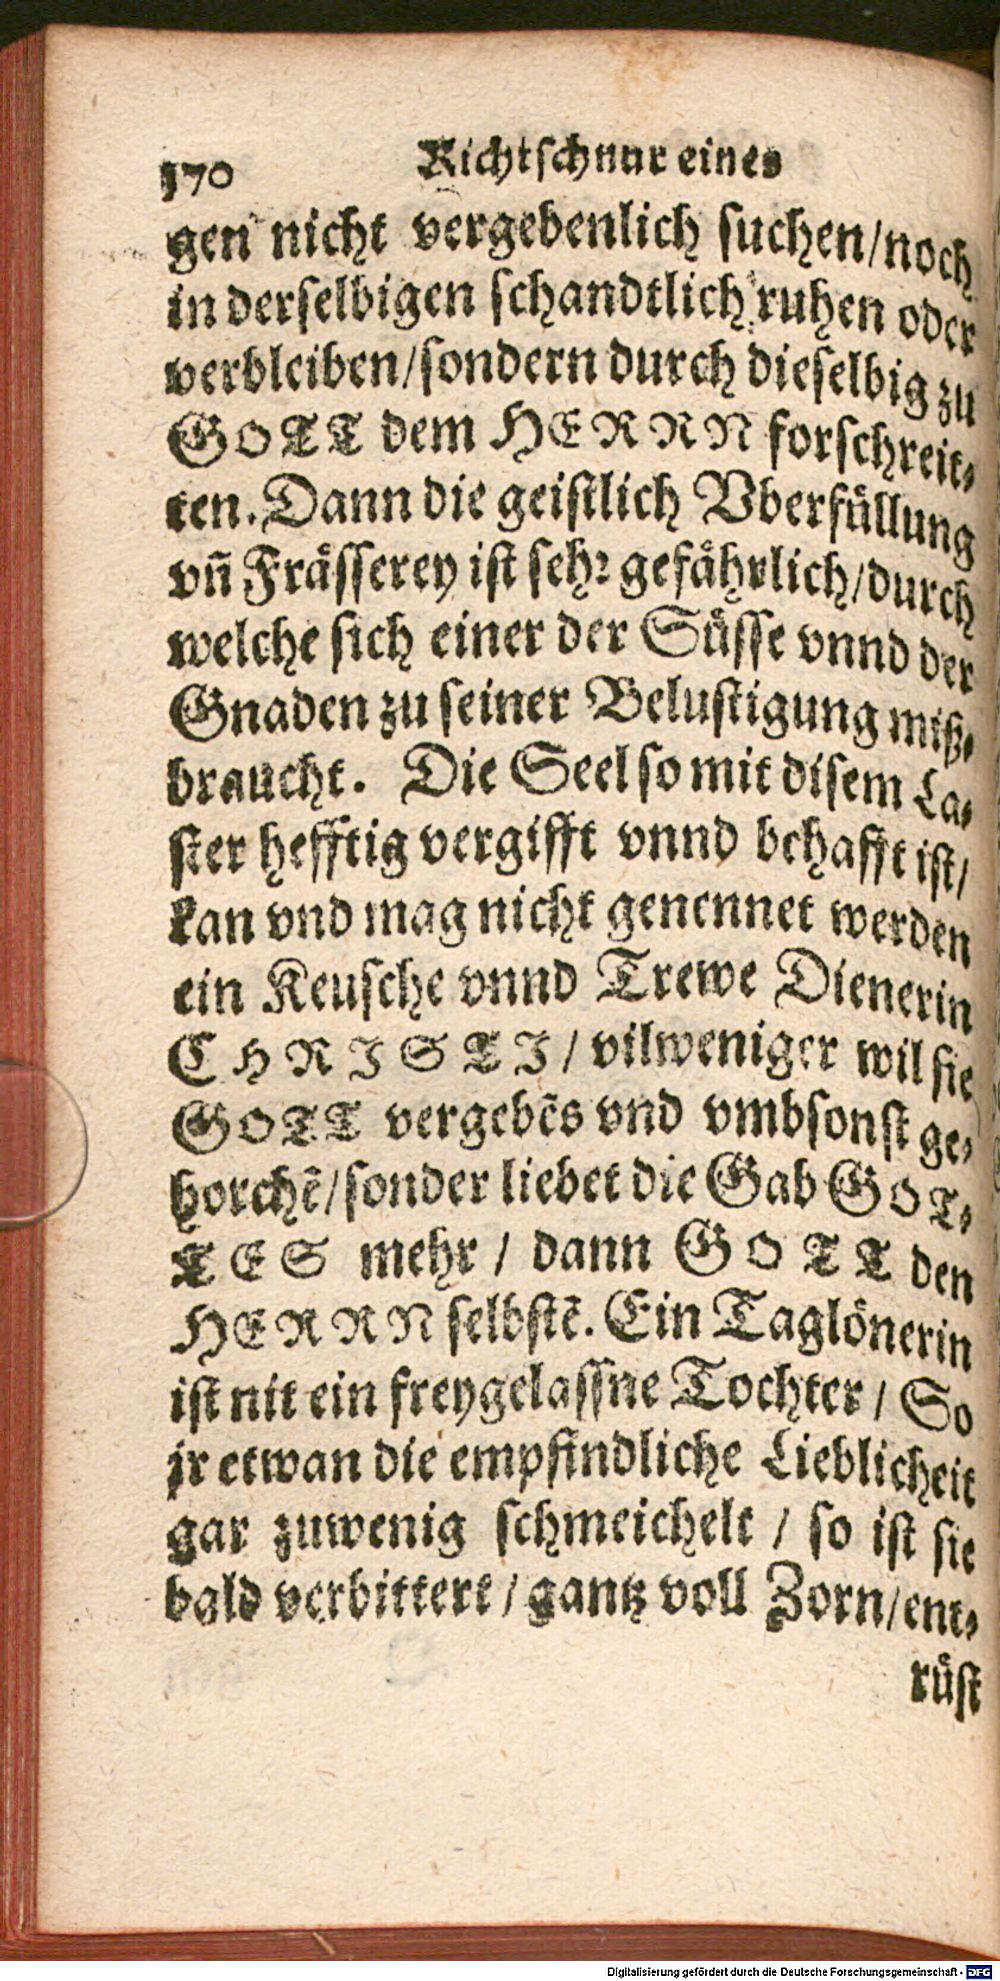 170 Richtſchnur eines
gen nicht vergebenlich ſuchen/noch
in derſelbigen ſchandtlich ruhen oder
verbleiben/ſondern durch dieſelbig zu
GOTT dem HERRN forſchreit⸗
ten. Dann die geiſtlich Vberfüllung
vñ Fräſſerey iſt ſehꝛ gefährlich/durch
welche ſich einer der Süſſe vnnd der
Gnaden zu ſeiner Beluſtigung miß⸗
braucht. Die Seel ſo mit diſem La⸗
ſter hefftig vergifft vnnd behafft iſt/
kan vnd mag nicht genennet werden
ein Keuſche vnnd Trewe Dienerin
CHRISTI/ vilweniger wil ſie
GOTT vergebẽs vnd vmbſonſt ge⸗
horchẽ/ſonder liebet die Gab GOT⸗
TES mehr / dann GOTT den
HERRN ſelbſtẽ. Ein Taglönerin
iſt nit ein freygelaſſne Tochter / So
jr etwan die empfindliche Lieblicheit
gar zuwenig ſchmeichelt / ſo iſt ſie
bald verbittert / gantz voll Zorn/ent⸗
rüſt
Digitalisierung gefördert durch die Deutsche Forschungsgemeinschaft - DFG